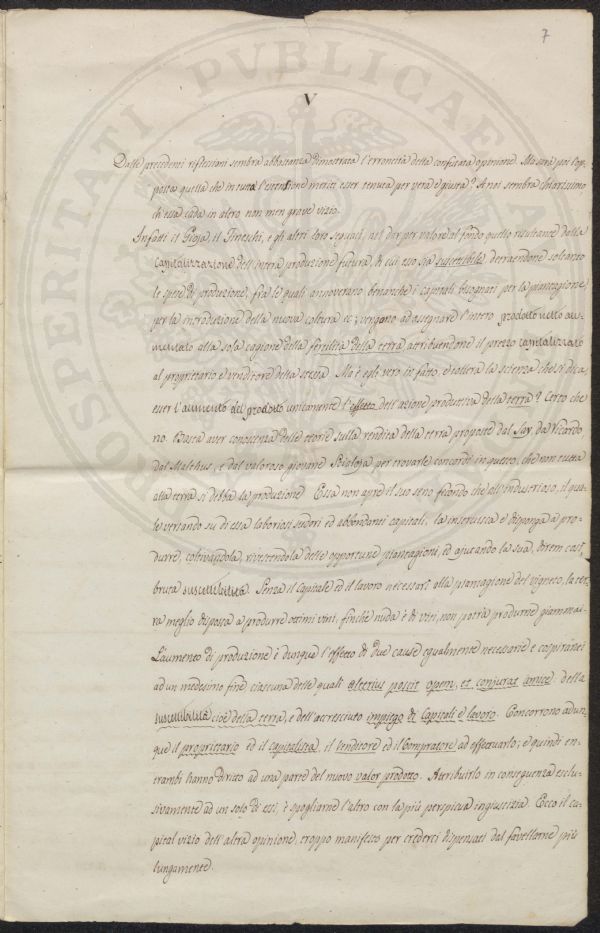 7
V
Dalle precedenti riflessioni sembra abbastanza dimostrata l'erroneità della confutata opinione. Ma sarà poi l'op-
posta quella che in tutta l'estensione meriti esser tenuta per vera e giusta? A noi sembra chiarissimo
ch'essa cada in altro non men grave vizio.
Infatti il Gioja, il Fineschi, e gli altri loro seguaci, nel dar per valore al fondo quello risultante dalla
capitalizzazione dell'intera produzione futura, di cui esso sia suscettibile detraendone soltanto
le spese di produzione, fra le quali annoverano benanche i capitali bisognati per la piantagione
per la introduzione della nuova coltura ec; vengono ad assegnare l'intero prodotto netto au-
mentato alla sola cagione della fertilità della terra attribuendone il prezzo capitalizzato
al proprietario e venditore della stessa. Ma è egli vero in fatto, e tollera la scienza che si dica,
esser l'aumento del prodotto unicamente l'effetto dell'azione produttiva della terra? Certo che
no. Basta aver conoscenza delle teorie sulla rendita della terra proposte dal Say, da Ricardo,
dal Malthus, e dal valoroso giovane Scialoja per trovarle concordi in questo, che non tutta
alla terra si debba la produzione. Essa non apre il suo seno fecondo che all'industrioso, il qua-
le versando su di essa laboriosi sudori ed abbondanti capitali, la costruisca e disponga a pro-
durre, coltivandola, rivestendola delle opportune piantagioni, ed ajutando la sua, direm così,
bruta suscettibilità. Senza il capitale ed il lavoro necessarî alla piantagione del vigneto, la ter-
ra meglio disposta a produrre ottimi vini, finchè nuda è di viti, non potrà produrne giammai.
L'aumento di produzione è dunque l'effetto di due cause egualmente necessarie e cospiranti
ad un medesimo fine ciascuna delle quali alterius poscit opem, et conjurat amice: della
suscettibilità cioè della terra, e dell'accresciuto impiego di capitali e lavoro. Concorrono adun-
que il proprietario ed il capitalista, il venditore ed il compratore ad effettuarlo; e quindi en-
trambi hanno diritto ad una parte del nuovo valor prodotto. Attribuirlo in conseguenza esclu-
sivamente ad un solo di essi, è spogliarne l'altro con la più perspicua ingiustizia. Ecco il ca-
pital vizio dell'altra opinione, troppo manifesto per crederci dispensati dal favellarne più
lungamente.
PROSPERITATI PUBLICAE